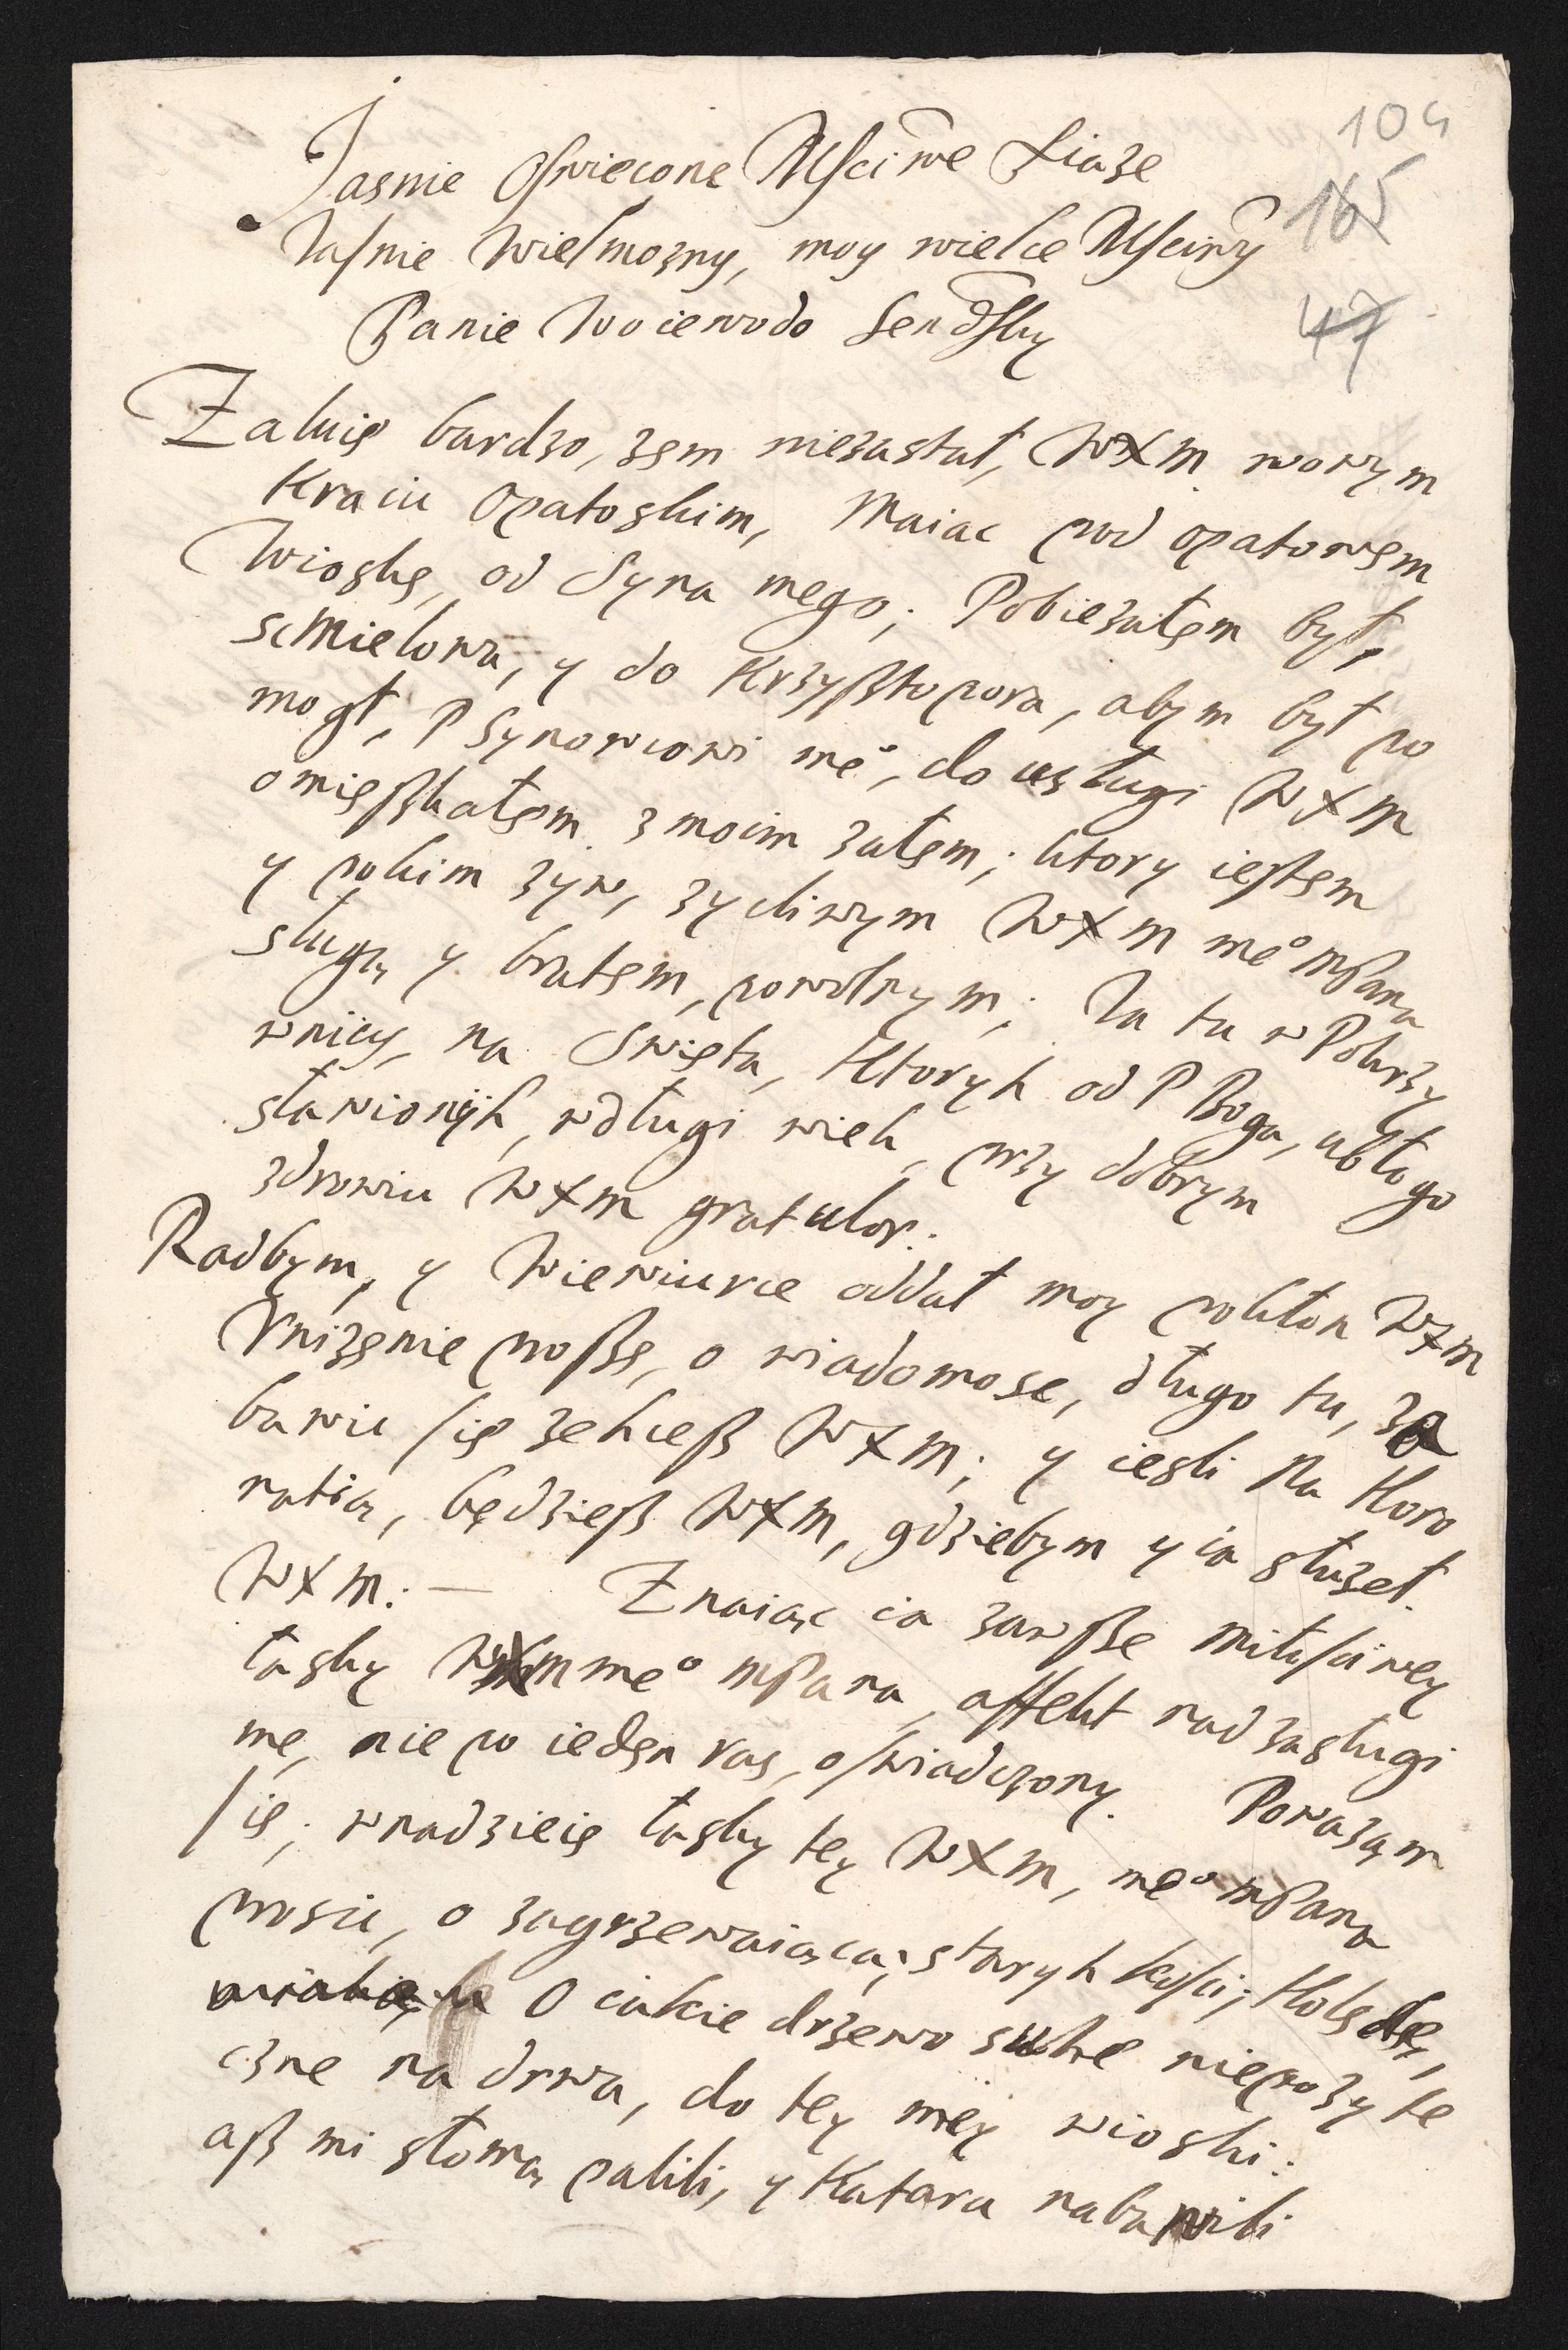 104
165
47
Jasnie Oswiecone Msciwe Xiaze
Jasnie Wielmozny, moy wielce Msciwy
Panie Woiewodo Sendsky
Zaluię bardzo, zem niezastał, WXM. wowym
Kraiu Opatoskim, Maiac pod opatowem
Wioskę, od Syna mego; Pobiezałem był,
scmielowa, y do Krzysztopora, abym był po
mogł, P Synowcowi meo, do usługi WXM
omięszkałem. z moim załem; ktory iestem
y pokim zyw, zycliwym WXM meo mPana
sługą y bratem, powolnym; Ja tu w Pokrzy
wnicy, na Swięta, Ktoryh od P Boga, ubłogo
sławionyh, wdługi wiek, przy dobrym
zdrowiu WXM gratulor.
Radbym, y Wiewiurce oddał moy pokłon WXM
Vnizenie proszę, o wiadomosc, długo tu, za
bawic się zehcesz WXM; y iesli na Koro
natią, będziesz WXM, gdziebym y ia słuzeł.
WXM: — Znaiąc ia zawsze miłosciwey
łasky WXM meo mPana, affekt nad zasługi
me, nie po ieden raz, oswiadczony. Powazam
się; wnadzieię łasky tey WXM, meo mPana
prosic, o zagrzewaiącą; staryh kosci; Kolędę,
O iakie drzewo suhe niepozyte
czne na drwa, do tey mey wioski:
asz mi słomą palili, y Katara nabawili